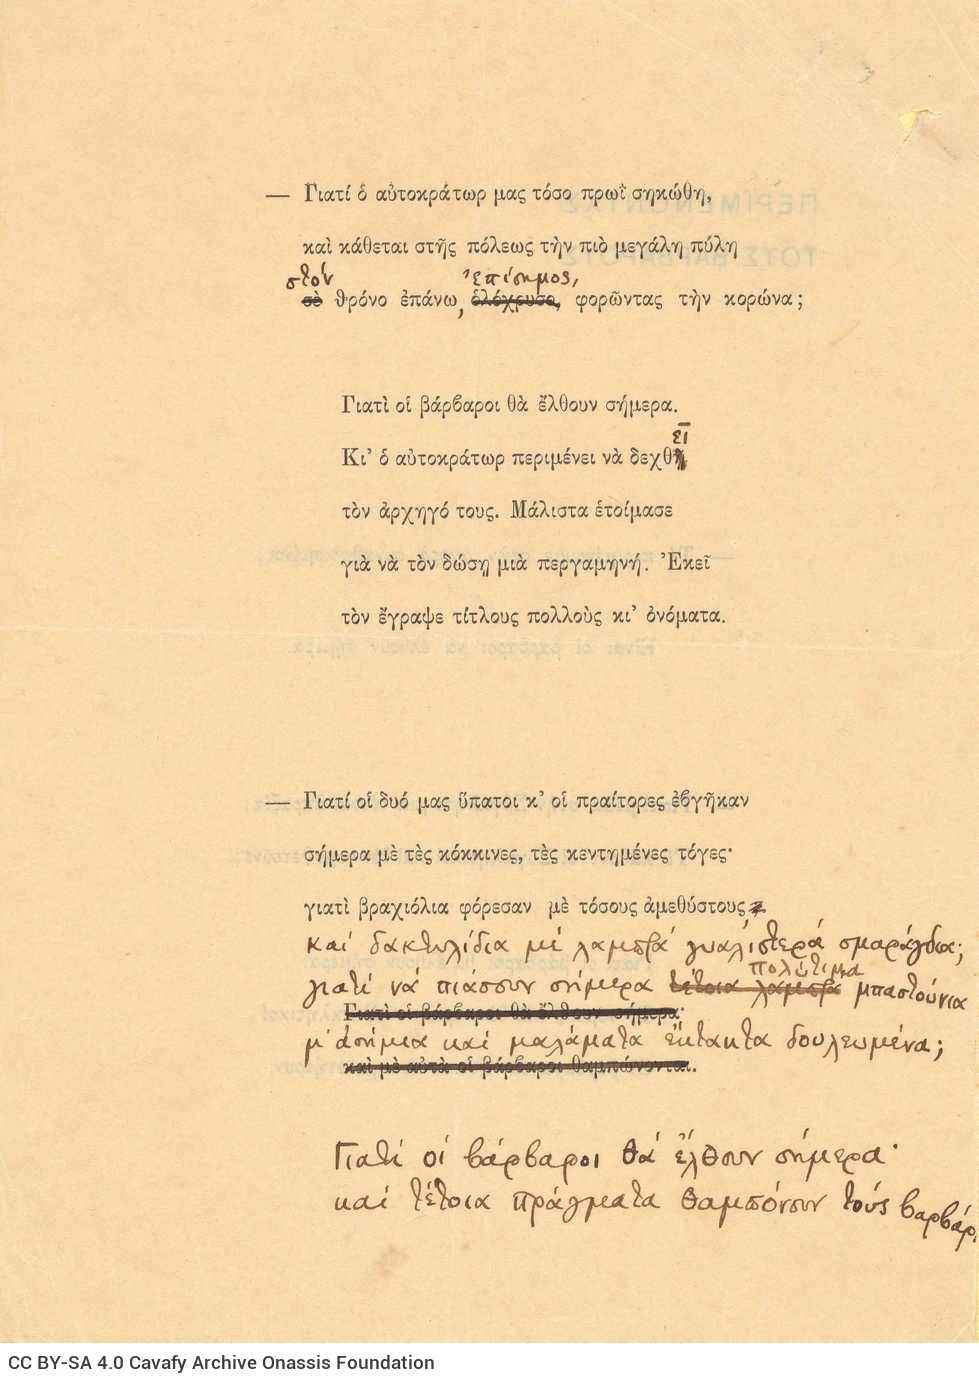 — Γιατί ὁ αὐτοκράτωρ μας τόσο πρωῒ σηκώθη,
καὶ κάθεται στῆς πόλεως τὴν πιὸ μεγάλη πύλη
στόν ἐπίσημος,
σὲ θρόνο ἐπάνω, ὁλόχρυσο, φορῶντας τὴν κορώνα;
Γιατὶ οἱ βάρβαροι θὰ ἔλθουν σήμερα.
εῖ
Κι’ ὁ αὐτοκράτωρ περιμένει νὰ δεχθῆ
τὸν ἀρχηγό τους. Μάλιστα ἑτοίμασε
γιὰ νὰ τὸν δώσῃ μιὰ περγαμηνή. Ἐκεῖ
τὸν ἔγραψε τίτλους πολλοὺς κι’ ὀνόματα.
— Γιατί οἱ δυό μας ὕπατοι κ’ οἱ πραίτορες ἐβγῆκαν
σήμερα μὲ τὲς κόκκινες, τὲς κεντημένες τόγες·
γιατὶ βραχιόλια φόρεσαν μὲ τόσους ἀμεθύστους
καί δακτυλίδια μέ λαμπρά γυαλιστερά σμαράγδια;
πολύτιμα
γιατί νά πιάσουν σήμερα τέτοια λαμπρά μπαστούνια
Γιατὶ οἱ βάρβαροι θὰ ἔλθουν σήμερα·
μ’ ἀσήμια καί μαλάματα ἔκτακτα δουλεωμένα;
καὶ μὲ αὐτὰ οἱ βάρβαροι θαμπώνονται.
Γιατί οἱ βάρβαροι θά ἔλθουν σήμερα·
καί τέτοια πράγματα θαμπόνουν τούς βαρβάρ
CC BY-SA 4.0 Cavafy Archive Onassis Foundation